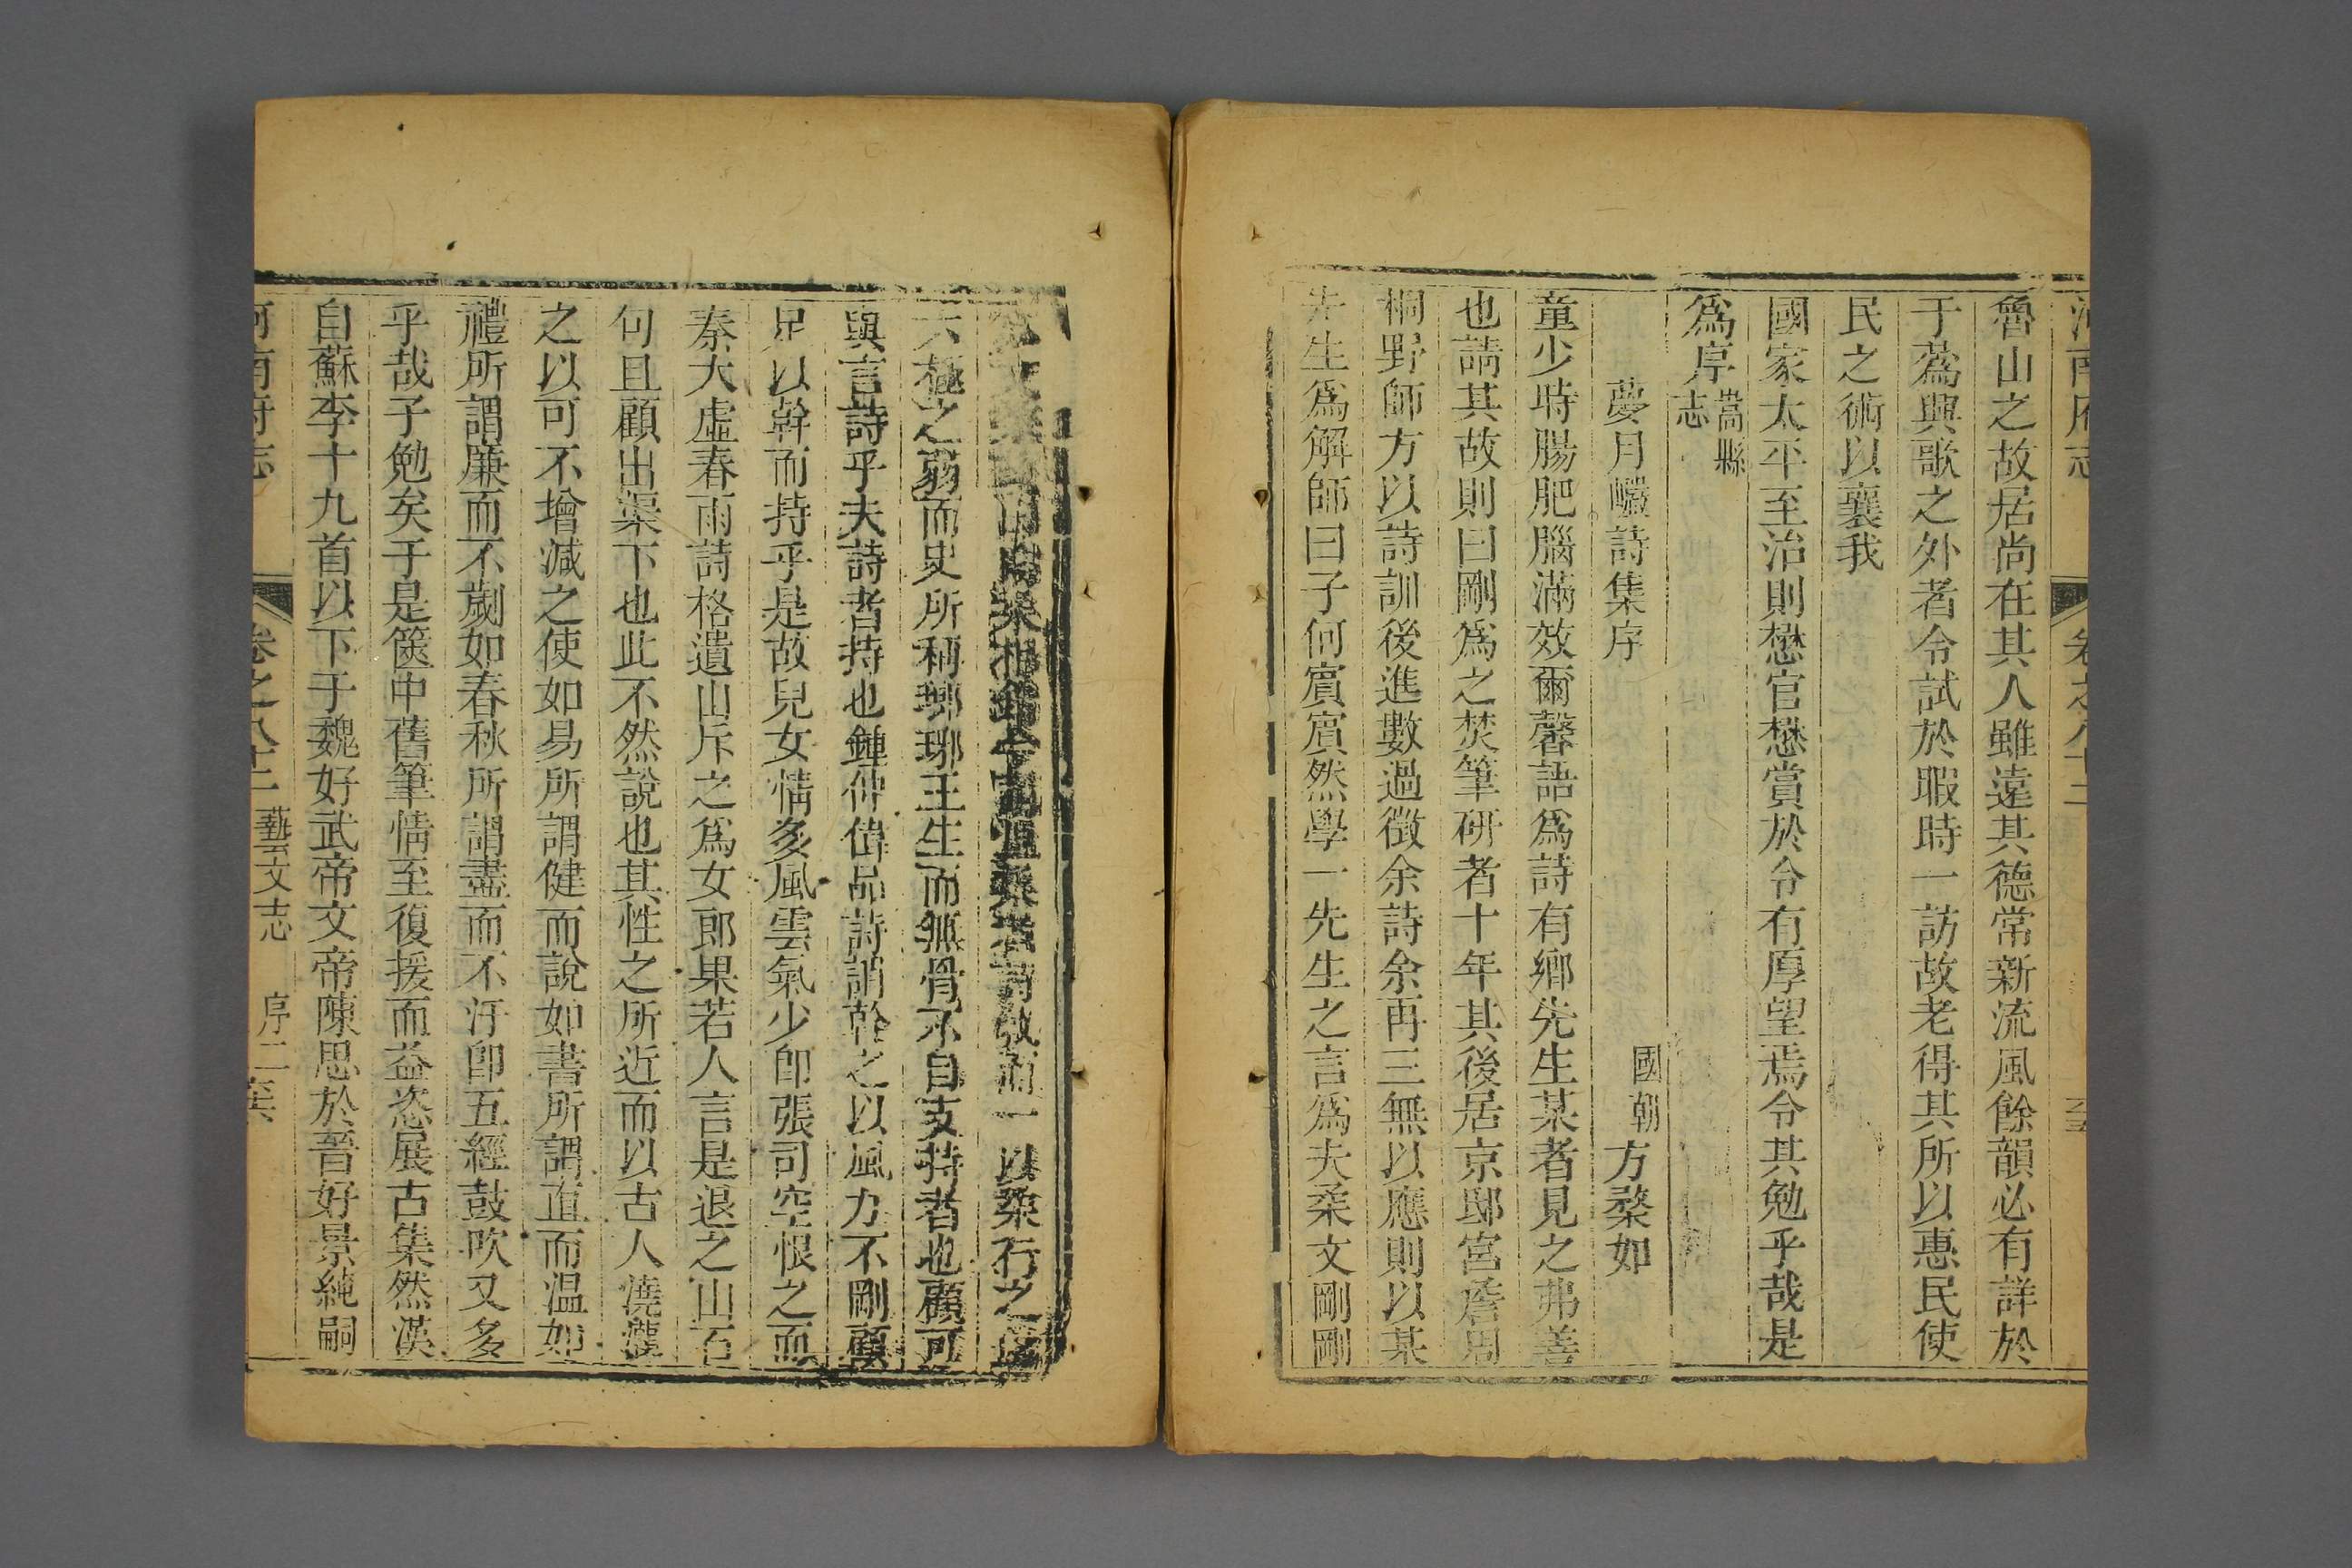 河南府志 卷之八十二
魯山之故居尚在其人雖遠其德常新流風餘韻必有詳於
于蔿興歌之外者令試於暇時一訪故老得其所以惠民使
民之術以襄我
國家太平至治則懋官懋賞於令有厚望焉令其勉乎哉是
爲序嵩縣志
夢月巘詩集序 國朝方棨如
童少時腸肥腦滿效爾馨語爲詩有鄉先生某者見之弗善
也請其故則曰剛爲之焚筆研者十年其後居京邸宮詹周
桐野師方以詩訓後進數過徵余詩余再三無以應則以某
先生爲解師曰子何賓賓然學一先生之言爲夫柔文剛剛
一以柔行之
之弱而史所稱瑯琊王生而無骨不自支持者也顧可
與言詩乎夫詩者持也鍾仲偉品詩謂幹之以風力不剛顧
足以幹而持乎是故兒女情多風雲氣少卽張司空恨之而
秦大虛春雨詩格遺山斥之爲女郎果若人言是退之山石
句且顧出渠下也此不然說也其性之所近而以古人澆灌
之以可不增減之使如易所謂健而說如書所謂直而温如
禮所謂廉而不劌如春秋所謂盡而不汙卽五經鼓吹又多
乎哉子勉矣于是篋中舊筆情至復援而益恣展古集然漢
自蘇李十九首以下于魏好武帝文帝陳思於晉好景純嗣
河南府志 卷之八十二 藝文志 序二